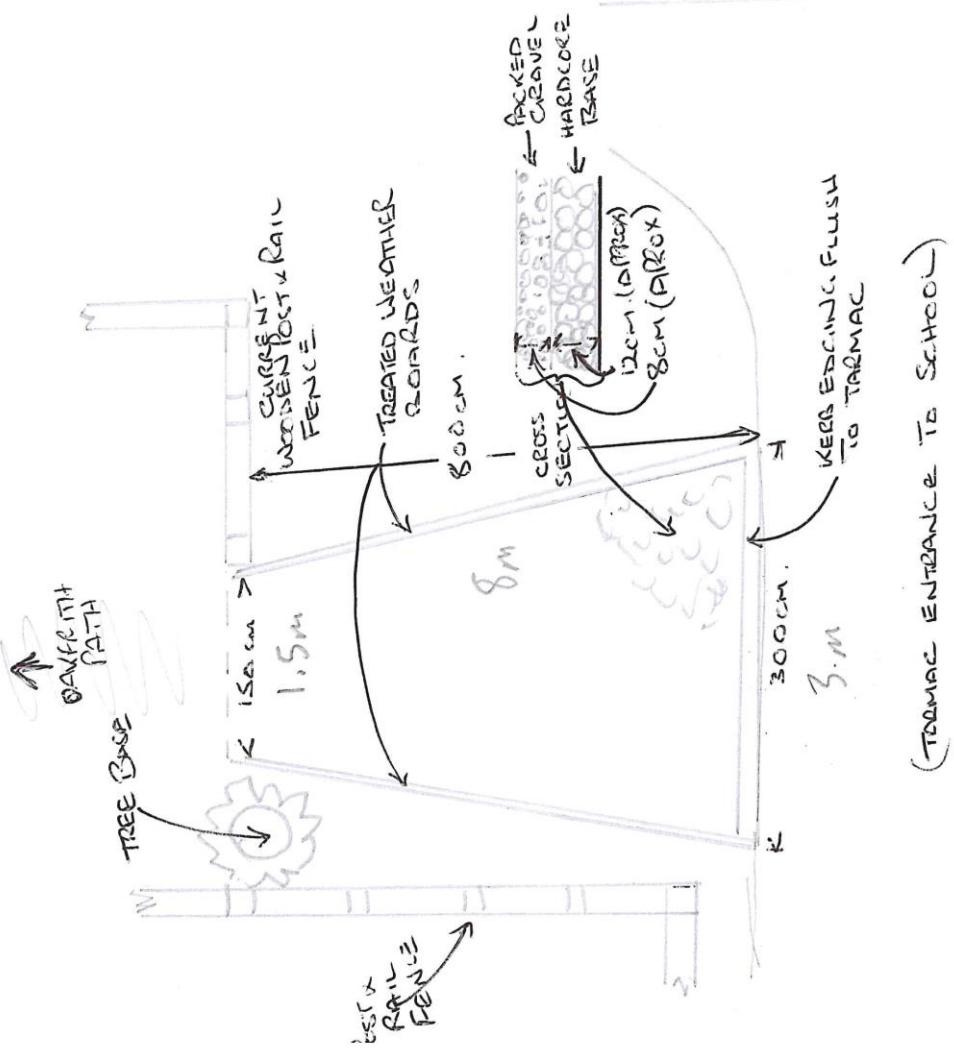 OAKFRITH
PATH
TREE BASE
150cm
1.5m
CURRENT
WOODEN POST & RAIL
FENCE
TREATED WEATHER
BOARDS
800cm.
8m
CROSS
SECTION
PACKED
GRAVEL
HARDCORE
BASE
12cm.(APPROX)
8cm(APROX)
POST &
RAIL
FENCE
KERB EDGING FLUSH
TO TARMAC
300cm.
3.m
(TARMAC ENTRANCE TO SCHOOL)